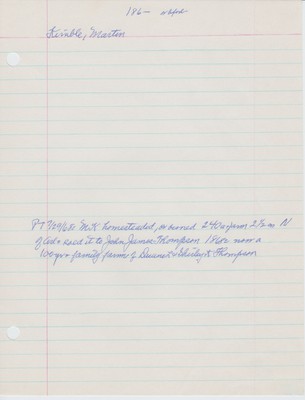 186-
Kimble, Martin
7/29/68 MK homesteaded, or owned 240 a farm 2½ m N
of Ced & sold it to John James Thompson 1860s now a
100 yr + family farm of Duane & Shirley Thompson